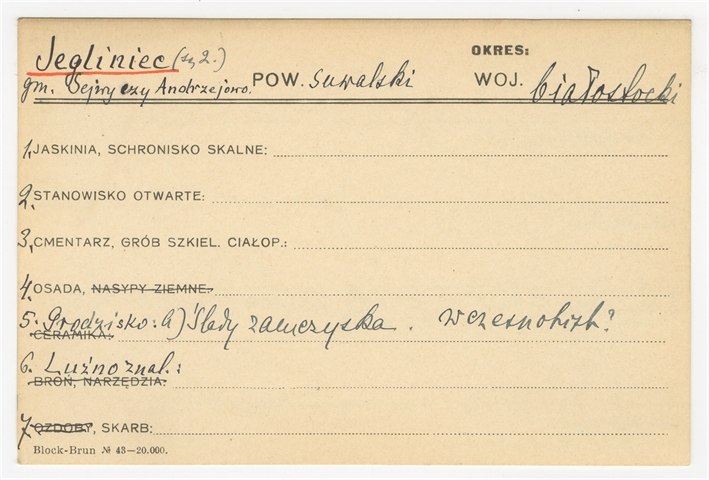 Jegliniec (sz 2.) OKRES:
gm. Sejwy czy Andrzejowo. POW. suwalski WOJ. białostocki
1. JASKINIA, SCHRONISKO SKALNE:
2. STANOWISKO OTWARTE:
3. CMENTARZ, GRÓB SZKIEL. CIAŁOP.:
4. OSADA, NASYPY ZIEMNE.
5. Grodzisko: a) Ślady zamczyska. wczesnohist?
CERAMIKA:
6. Luźno znal.:
BROŃ, NARZĘDZIA:
7 OZDOBY, SKARB:
Block-Brun № 43–20.000.